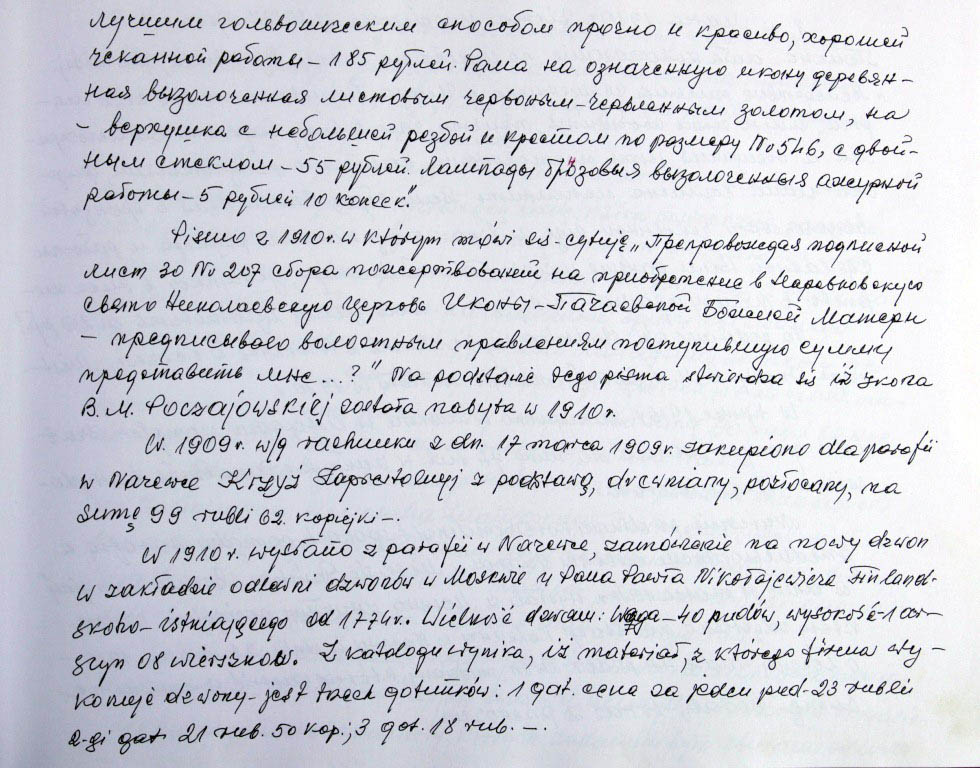 лучшим гольваническим способом прочно и красиво, хорошей
чеканной работы – 185 рублей. Рама на означенную икону деревян –
ная вызолоченная листовым червоным-червленным золотом, на
– верхушка с небольшей резбой и крестом по размеру № 546, с двой-
ным стеклом – 55 рублей. Лампады брозовыя вызолоченныя ажурной
работы – 5 рублей 10 копеек."
Pismo z 1910r. w którym mówi się – cytuję „Препровождая подписной
лист зо № 207 сбора пожертвований на приобретение в Наревковскую
свято Николаевскую церковь Иконы – Пачаевской Божией Матери
– предписываю волостным правлениям поступившую сумму
представить мне...?" Na podstawie tego pisma stwierdza się iż ikona
B. M. Poczajowskiej została nabyta w 1910r.
W. 1909r. w/g rachunku z dn. 17 marca 1909r. zakupiono dla parafii
w Narewce Krzyż Zaprestolnyj z podstawą, drewniany, pozłocany, na
sumę 99 rubli 62. kopiejki –.
W 1910r. wysłano z parafii w Narewce, zamówienie na nowy dzwon
w zakładzie odlewni dzwonów w Moskwie u Pana Pawła Nikołajewicza Finland-
skoho – istniejącego od 1774r. Wielkość dzwonu: waga – 40 pudów, wysokość – 1 ar-
szyn 08 wierszków. Z katalogu wynika, iż materiał, z którego firma wy –
konuje dzwony – jest trzech gatunków: 1 gat. cena za jeden pud – 23 rubli
2-gi gat. 21 rub. 50 kop.; 3 gat. 18 rub. –.